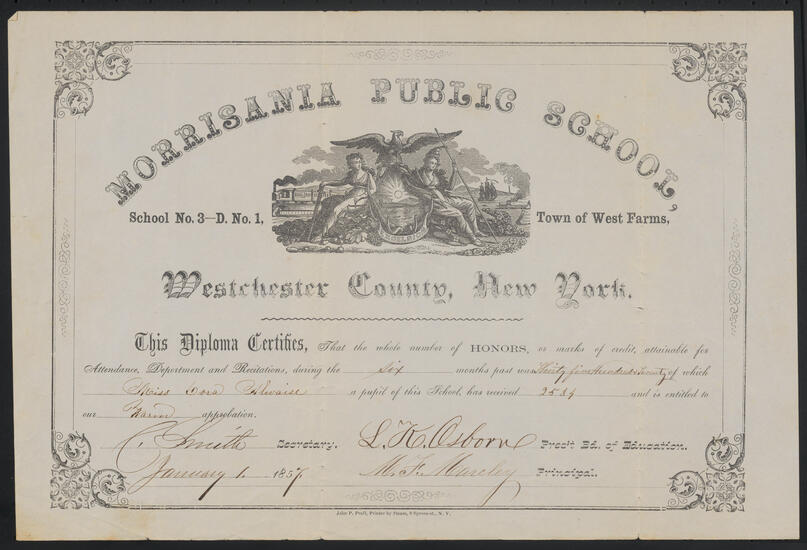 MORRISANIA PUBLIC SCHOOL,
School No. 3—D. No. 1,
Town of West Farms,
Westchester County, New York.
This Diploma Certifies, That the whole number of HONORS, or marks of credit, attainable for
Attendance, Deportment and Recitations, during the Six months past was Thirty five Hundred & Twenty of which
Miss Cora a pupil of this School, has received and is entitled to
our Warm approbation.
C. Smith Secretary. L. K. Osborn Presi't Bd. of Education.
January 1. 1857. M. F. Principal.
John P. Prall, Printer by Steam, 9 Spruce-st., N. Y.